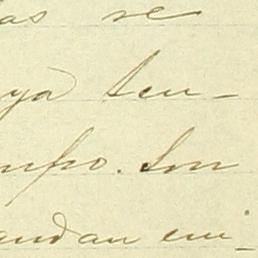 as se
ya ten-
mpo. Son
andan en